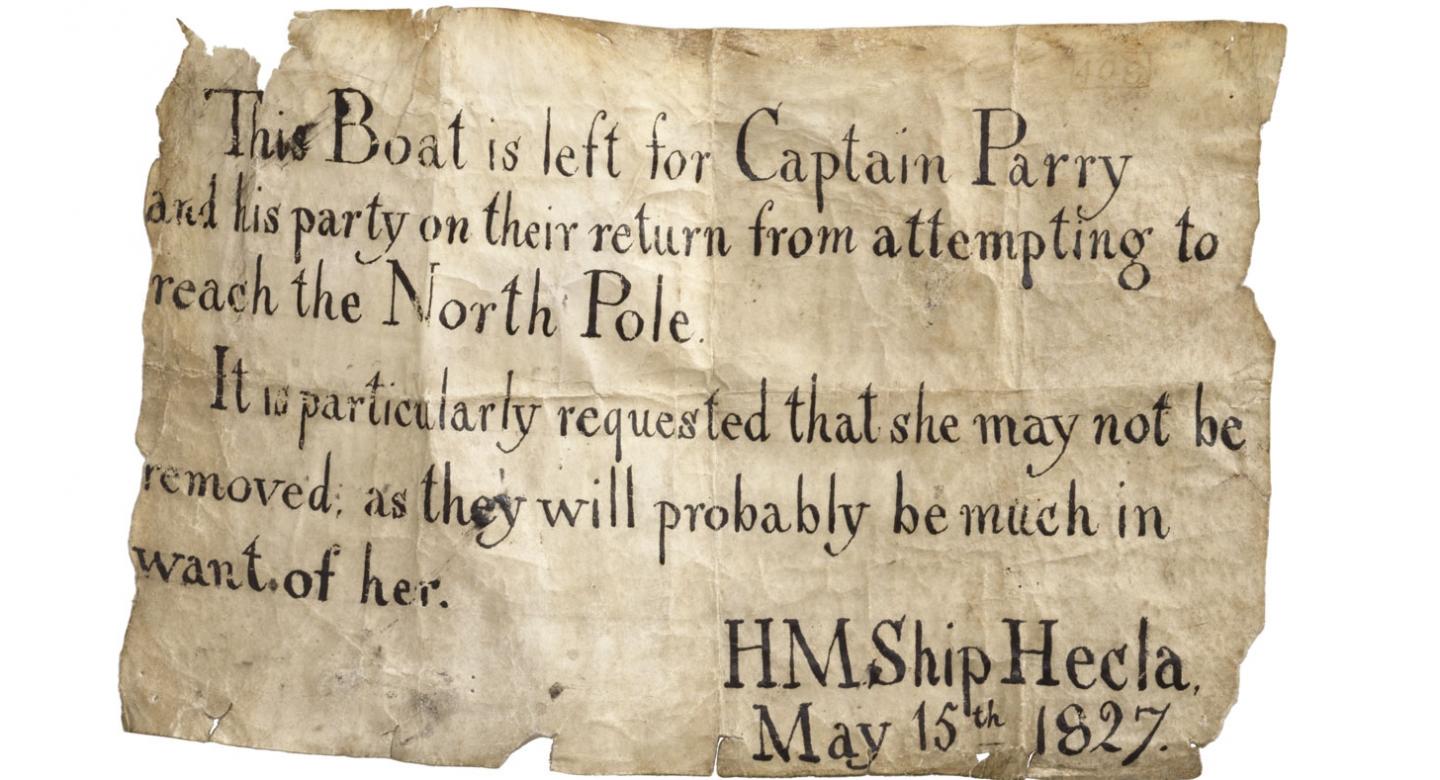 This Boat is left for Captain Parry
and his party on their return from attempting to
reach the North Pole.
It is particularly requested that she may not be
removed; as they will probably be much in
want of her.
HM Ship Hecla,
May 15th 1827.